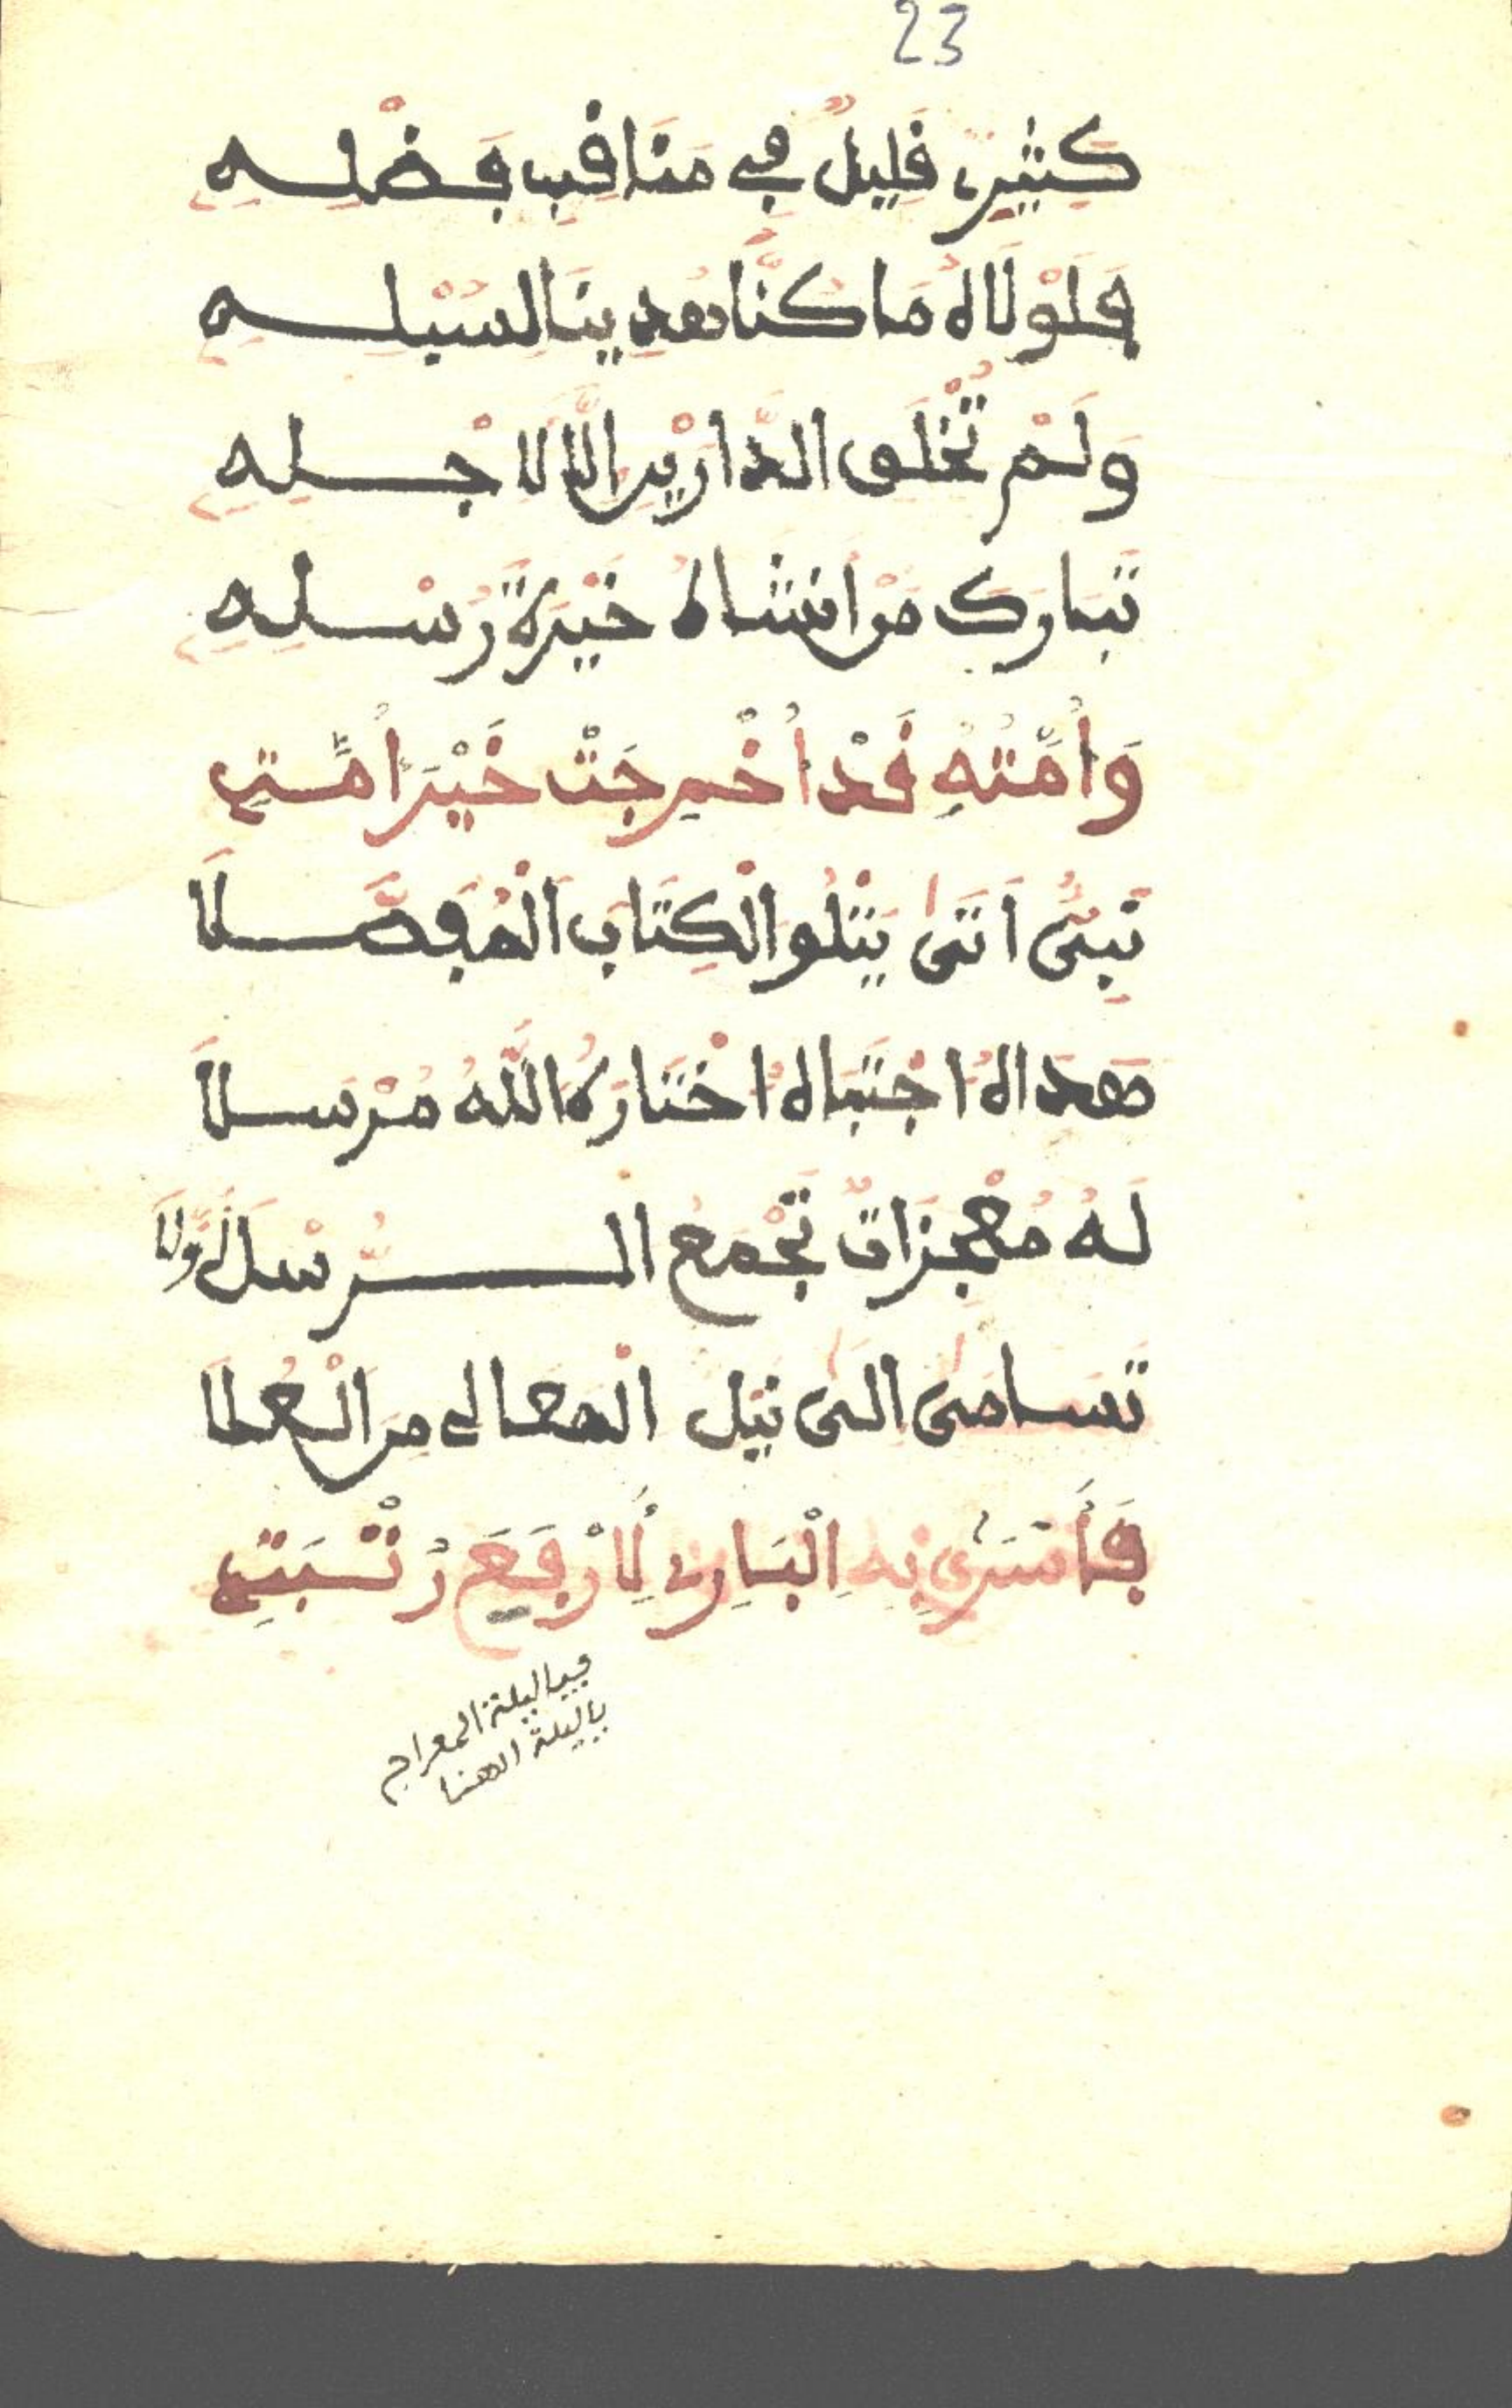 23
كَثِيرٌ قَلِيلٌ فِي مَنَاقِبِ فَضْلِهِ
فَلَوْلَاهُ مَا كُنَّا هُدِينَا لِسُبْلِهِ
وَلَمْ تُخْلَقِ الدَّارَيْنِ إِلَّا لِأَجْلِهِ
تَبَارَكَ مَنْ أَنْشَاهُ خَيْرَةَ رُسْلِهِ
وَأُمَّتُهُ قَدْ أُخْرِجَتْ خَيْرَ أُمَّتِ
نَبِيٌّ أَتَى يَتْلُو الْكِتَابَ الْمُفَصَّلَا
هَدَاهُ اجْتَبَاهُ اخْتَارَهُ اللَّهُ مُرْسَلَا
لَهُ مُعْجِزَاتٌ تَجْمَعُ الرُّسْلَ أَوَّلَا
تَسَامَى إِلَى نَيْلِ الْمَعَالِي مِنَ الْعُلَا
فَأَسْرَى بِهِ الْبَارِي لِأَرْفَعِ رُتْبَتِ
فيا ليلة المعراج
يا ليلة الهنا